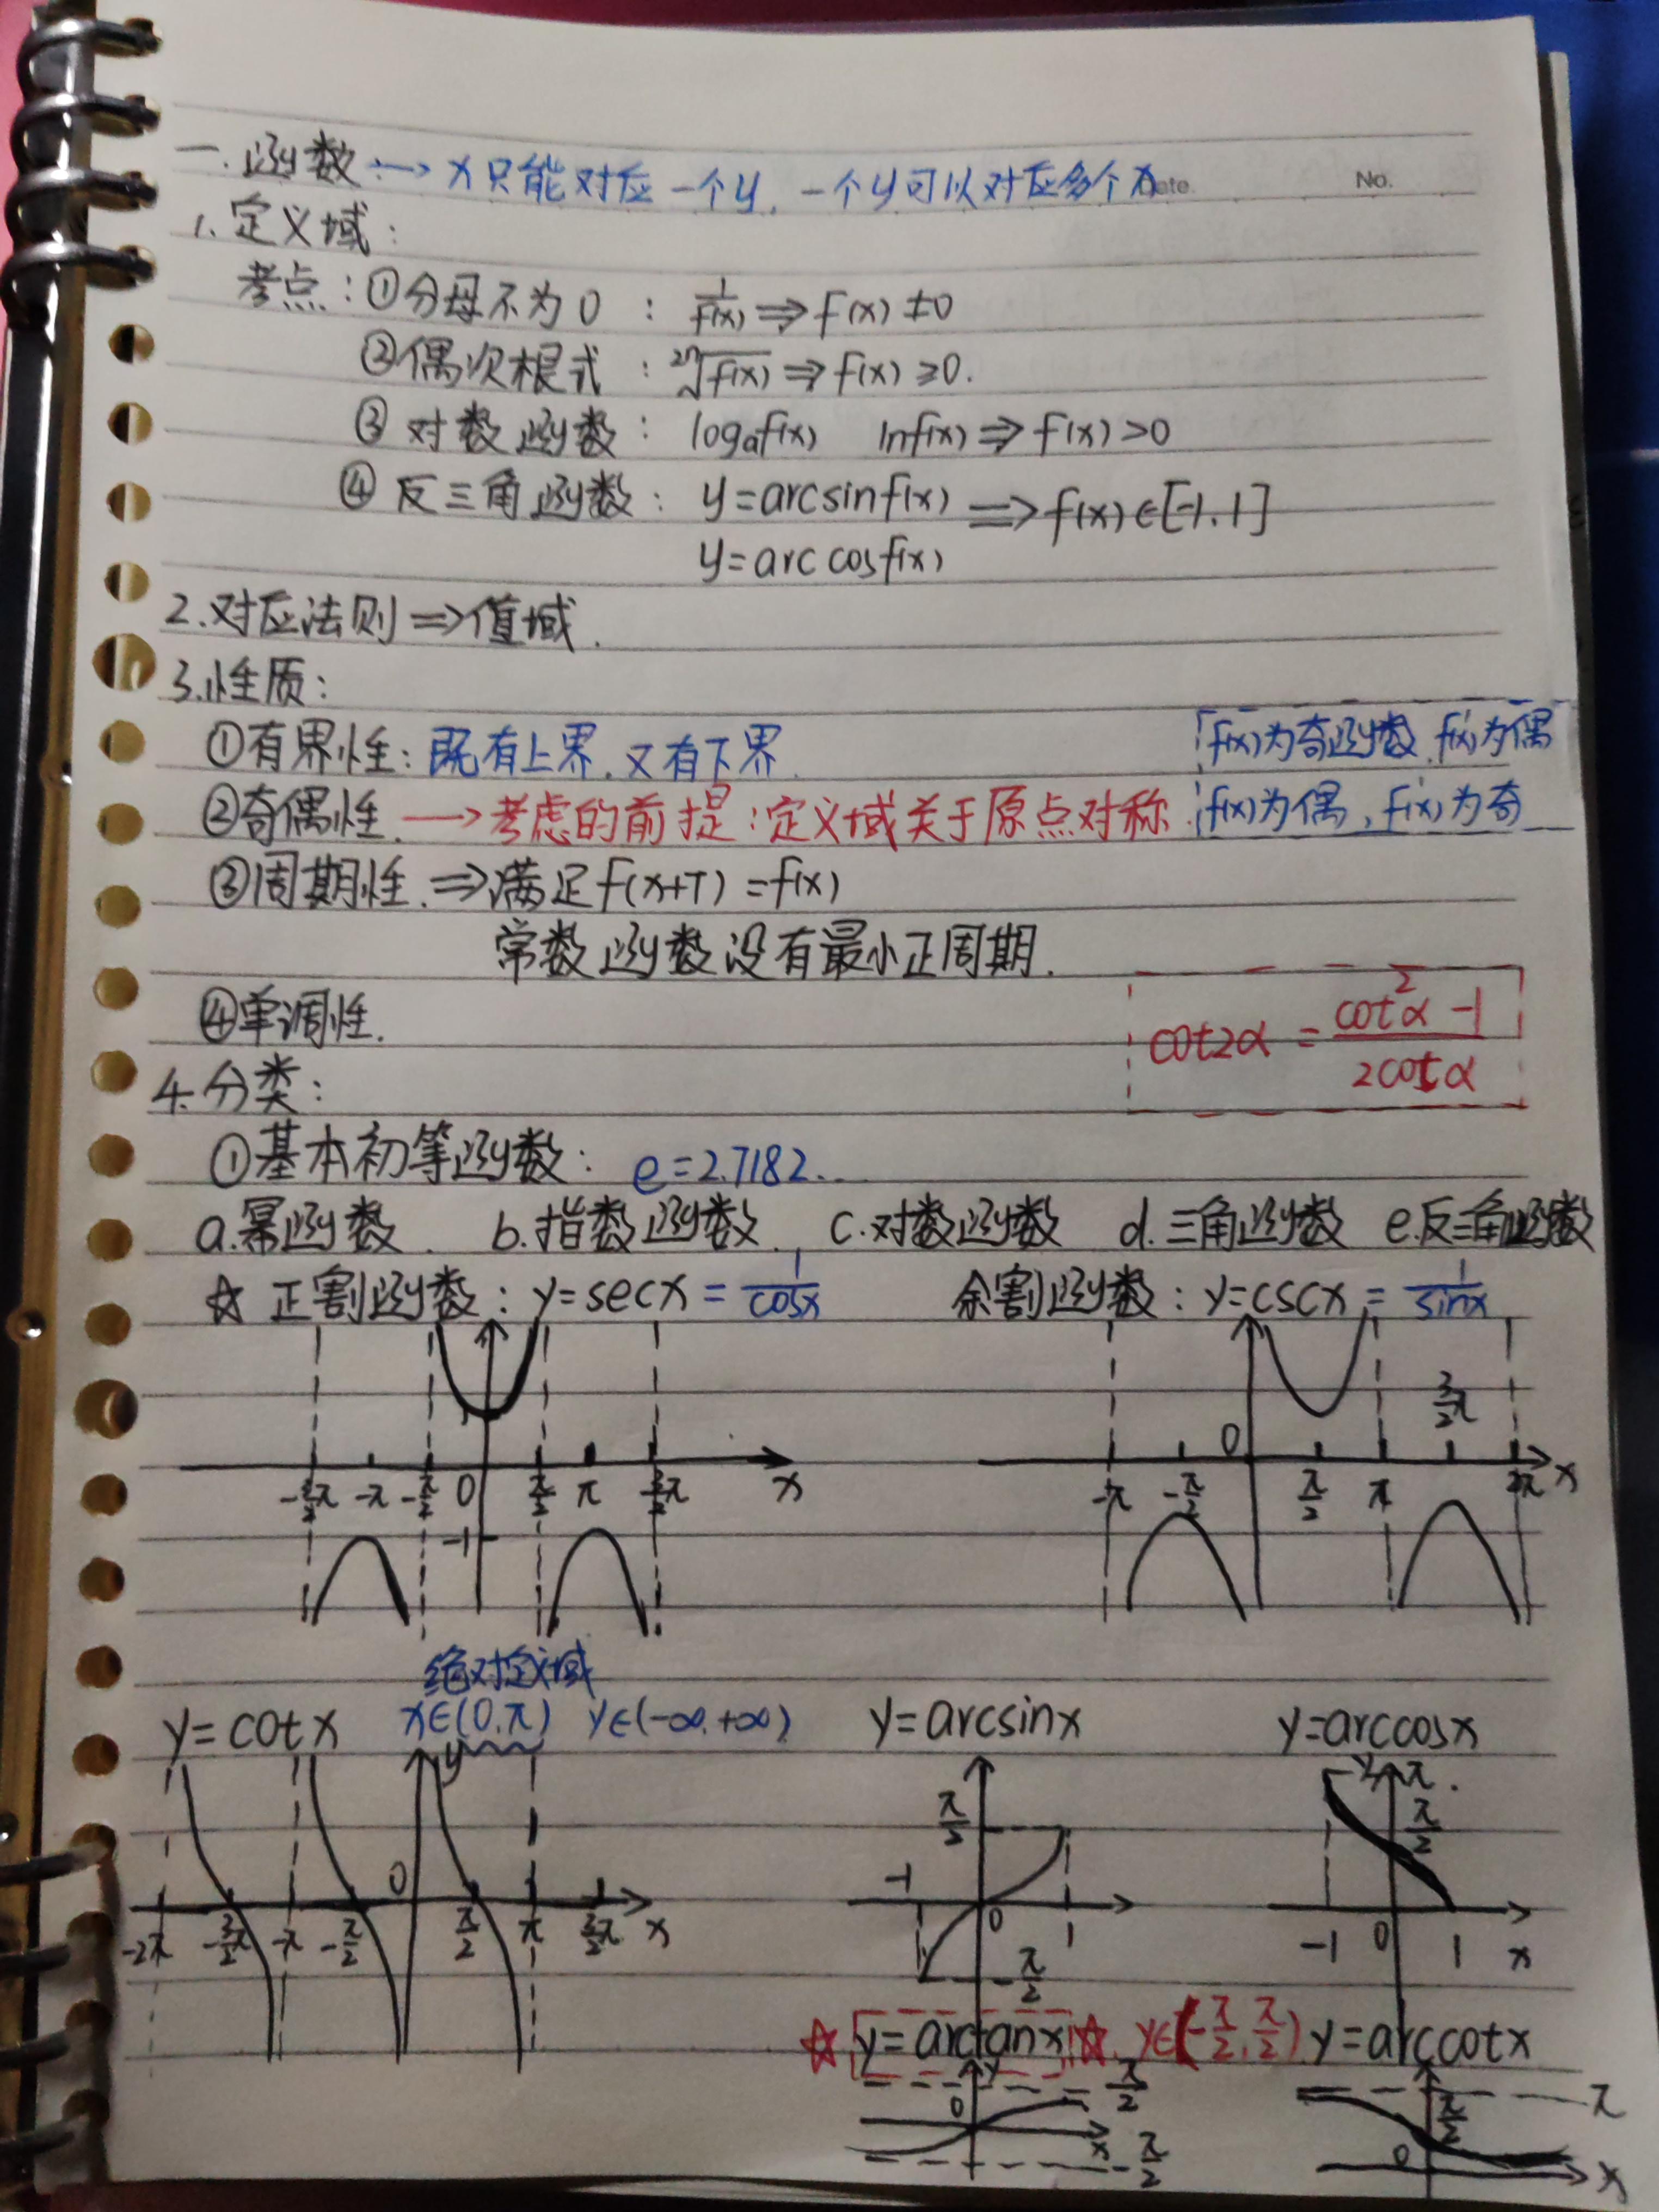 一.函数 → x只能对应一个y，一个y可以对应多个x
No.
1.定义域：
考点：①分母不为0：1/f(x) ⇒ f(x)≠0
②偶次根式：²ⁿ√f(x) ⇒ f(x)≥0.
③对数函数：logₐf(x) lnf(x) ⇒ f(x)>0
④反三角函数：y=arcsinf(x) ⇒ f(x)∈[-1,1]
y=arccosf(x)
2.对应法则⇒值域.
3.性质：
①有界性：既有上界.又有下界.
f(x)为奇函数,f'(x)为偶
②奇偶性.→考虑的前提：定义域关于原点对称.
f(x)为偶,f'(x)为奇
③周期性.⇒满足f(x+T)=f(x)
常数函数没有最小正周期.
④单调性.
cot2α = (cot²α-1)/(2cotα)
4.分类：
①基本初等函数：e=2.7182...
a.幂函数. b.指数函数. c.对数函数 d.三角函数 e.反三角函数
☆ 正割函数：y=secx=1/cosx 余割函数：y=cscx=1/sinx
3/2π
0
-3/2π -π -π/2 0 π/2 π 3/2π x
-π -π/2 π/2 π 2π x
-1
绝对定义域
y=cotx x∈(0,π) y∈(-∞,+∞) y=arcsinx y=arccosx
y
y π.
π/2 π/2
0 -1
-2π -3/2π -π -π/2 π/2 π 3/2π x
0 1
-1 0 1 x
-π/2
☆ y=arctanx ☆ y∈(-π/2,π/2) y=arccotx
y π/2 π
0 π/2
x -π/2 0 x